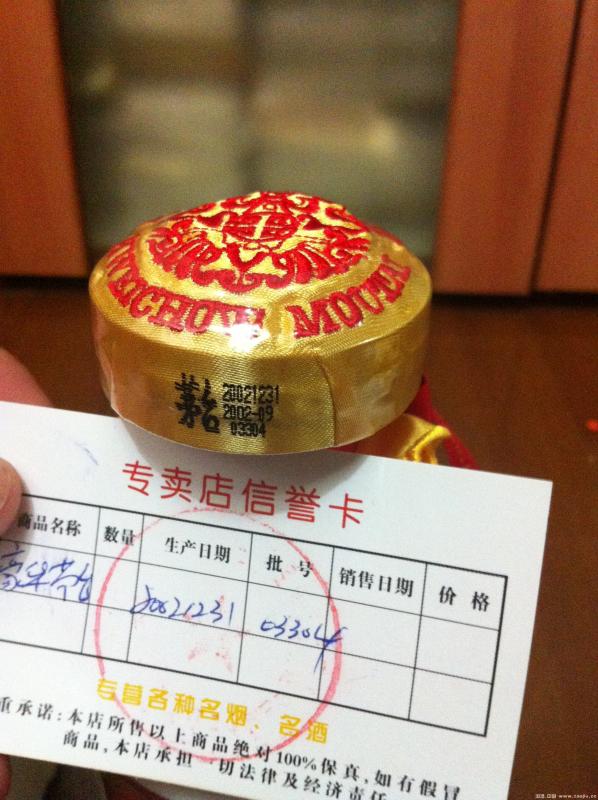 KWEICHOW MOUTAI
茅台
20021231
2002-09
03304
专卖店信誉卡
商品名称 数量 生产日期 批号 销售日期 价格
20021231 03304
专营各种名烟、名酒
重承诺:本店所售以上商品绝对100%保真,如有假冒
商品,本店承担一切法律及经济责任